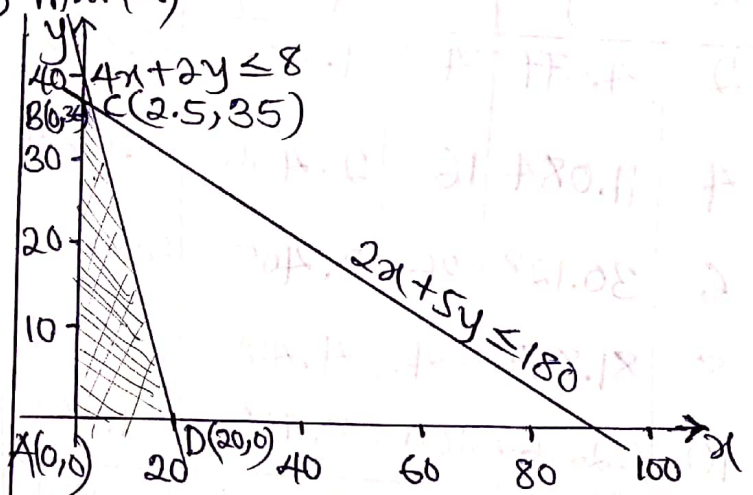 y
40 4x+2y≤8
B(0,36) C(2.5,35)
30
20
2x+5y≤180
10
A(0,0) D(20,0) x
20 40 60 80 100